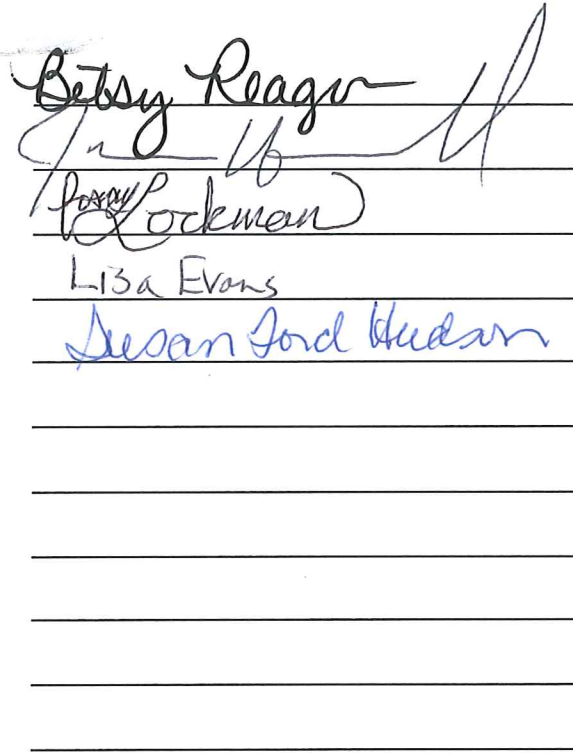 Betsy Reagan
Lockman
Lisa Evans
Susan Ford Hudson